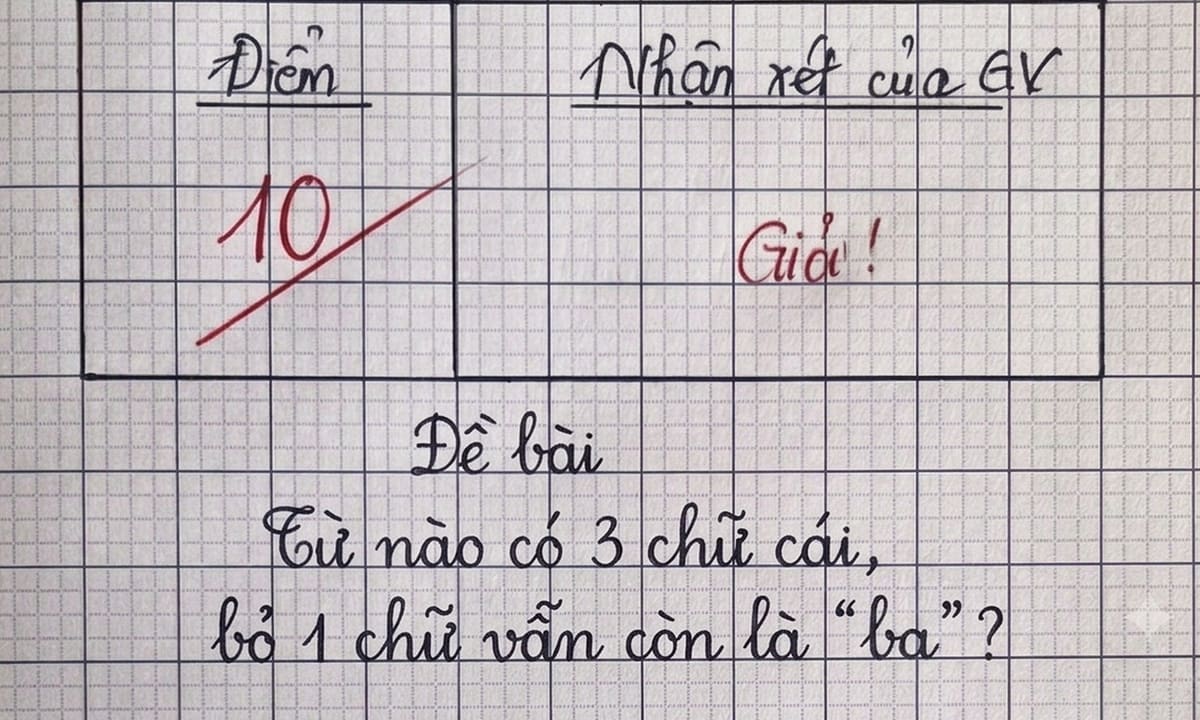 Điểm
Nhận xét của GV
10
Giỏi!
Đề bài
Từ nào có 3 chữ cái,
bỏ 1 chữ vẫn còn là “ba”?